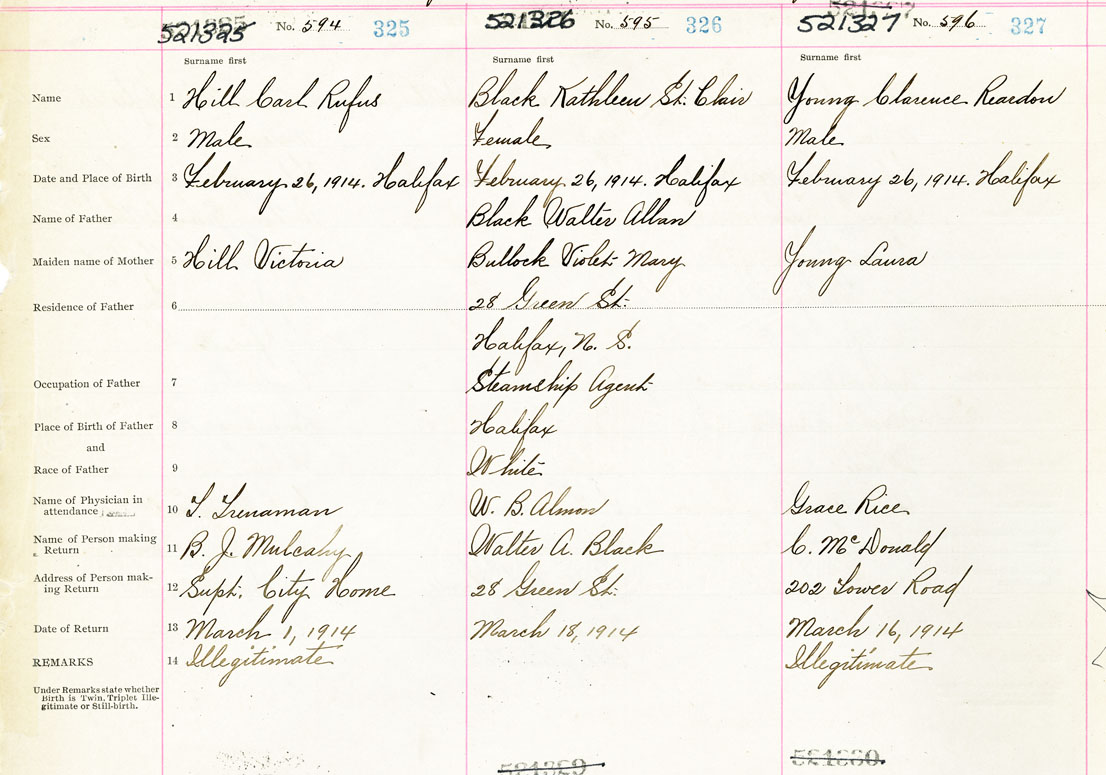 521325 No. 594 325 521326 No. 595 326 521327 No. 596 327
Surname first Surname first Surname first
Name 1 Hill Carl Rufus Black Kathleen St. Clair Young Clarence Reardon
Sex 2 Male Female Male
Date and Place of Birth 3 February 26, 1914. Halifax February 26, 1914. Halifax February 26, 1914. Halifax
Name of Father 4 Black Walter Alban
Maiden name of Mother 5 Hill Victoria Bullock Violet Mary Young Laura
Residence of Father 6 28 Green St.
Halifax, N. S.
Occupation of Father 7 Steamship Agent
Place of Birth of Father 8 Halifax
and
Race of Father 9 White
Name of Physician in
attendance 10 T. Trenaman W. B. Almon Grace Rice
Name of Person making
Return 11 B. J. Mulcahy Walter A. Black C. McDonald
Address of Person mak-
ing Return 12 Supt. City Home 28 Green St. 202 Lower Road
Date of Return 13 March 1, 1914 March 18, 1914 March 16, 1914
REMARKS 14 Illegitimate Illegitimate
Under Remarks state whether
Birth is Twin, Triplet Ille-
gitimate or Still-birth.
521329 521330